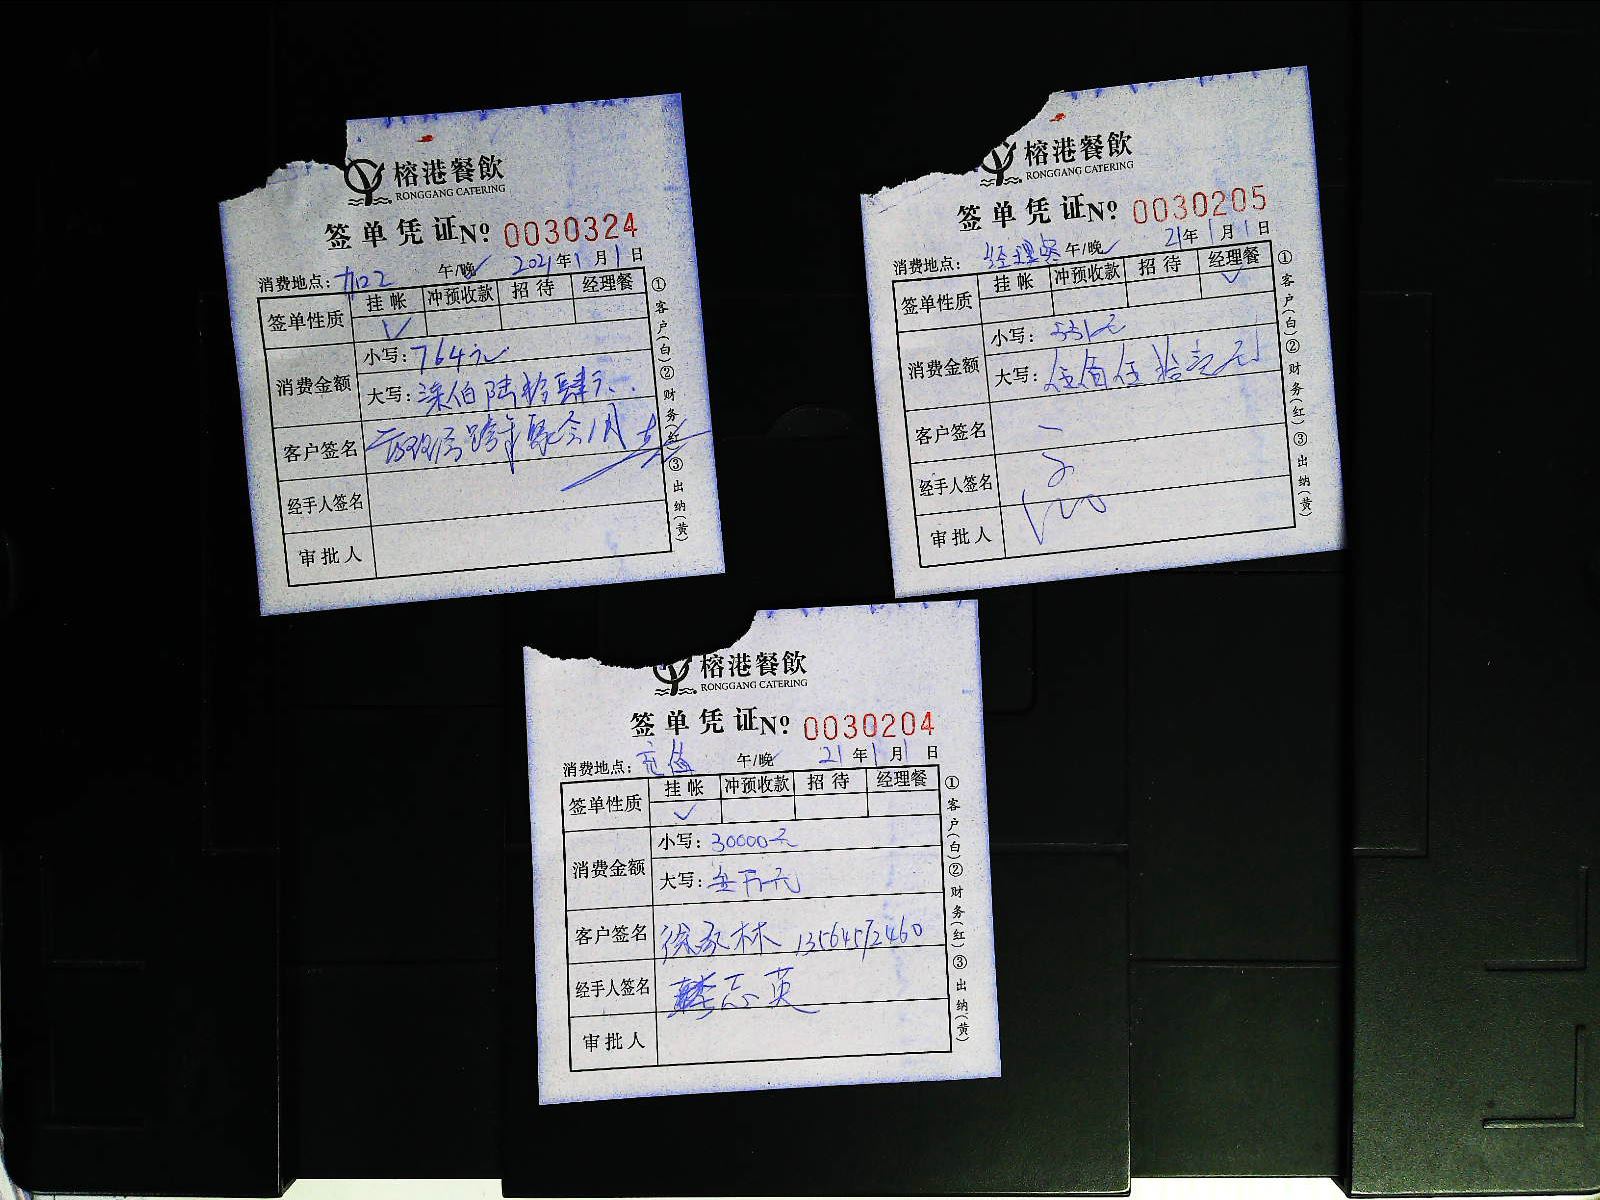 榕港餐飲
RONGGANG CATERING
签单凭证 Nº 0030324
消费地点： 午/晚 2021年1月1日
签单性质 挂帐 冲预收款 招待 经理餐
消费金额 小写：764元
大写：柒佰陆拾肆元
客户签名 跨年聚会1月
经手人签名
审批人
①客户（白）②财务（红）③出纳（黄）
榕港餐飲
RONGGANG CATERING
签单凭证 Nº 0030205
消费地点：经理餐 午/晚 21年1月1日
签单性质 挂帐 冲预收款 招待 经理餐
消费金额 小写：551元
大写：伍佰伍拾壹元
客户签名
经手人签名
审批人
①客户（白）②财务（红）③出纳（黄）
榕港餐飲
RONGGANG CATERING
签单凭证 Nº 0030204
消费地点：充值 午/晚 21年1月1日
签单性质 挂帐 冲预收款 招待 经理餐
消费金额 小写：30000元
大写：叁万元
客户签名 13564572460
经手人签名 志英
审批人
①客户（白）②财务（红）③出纳（黄）